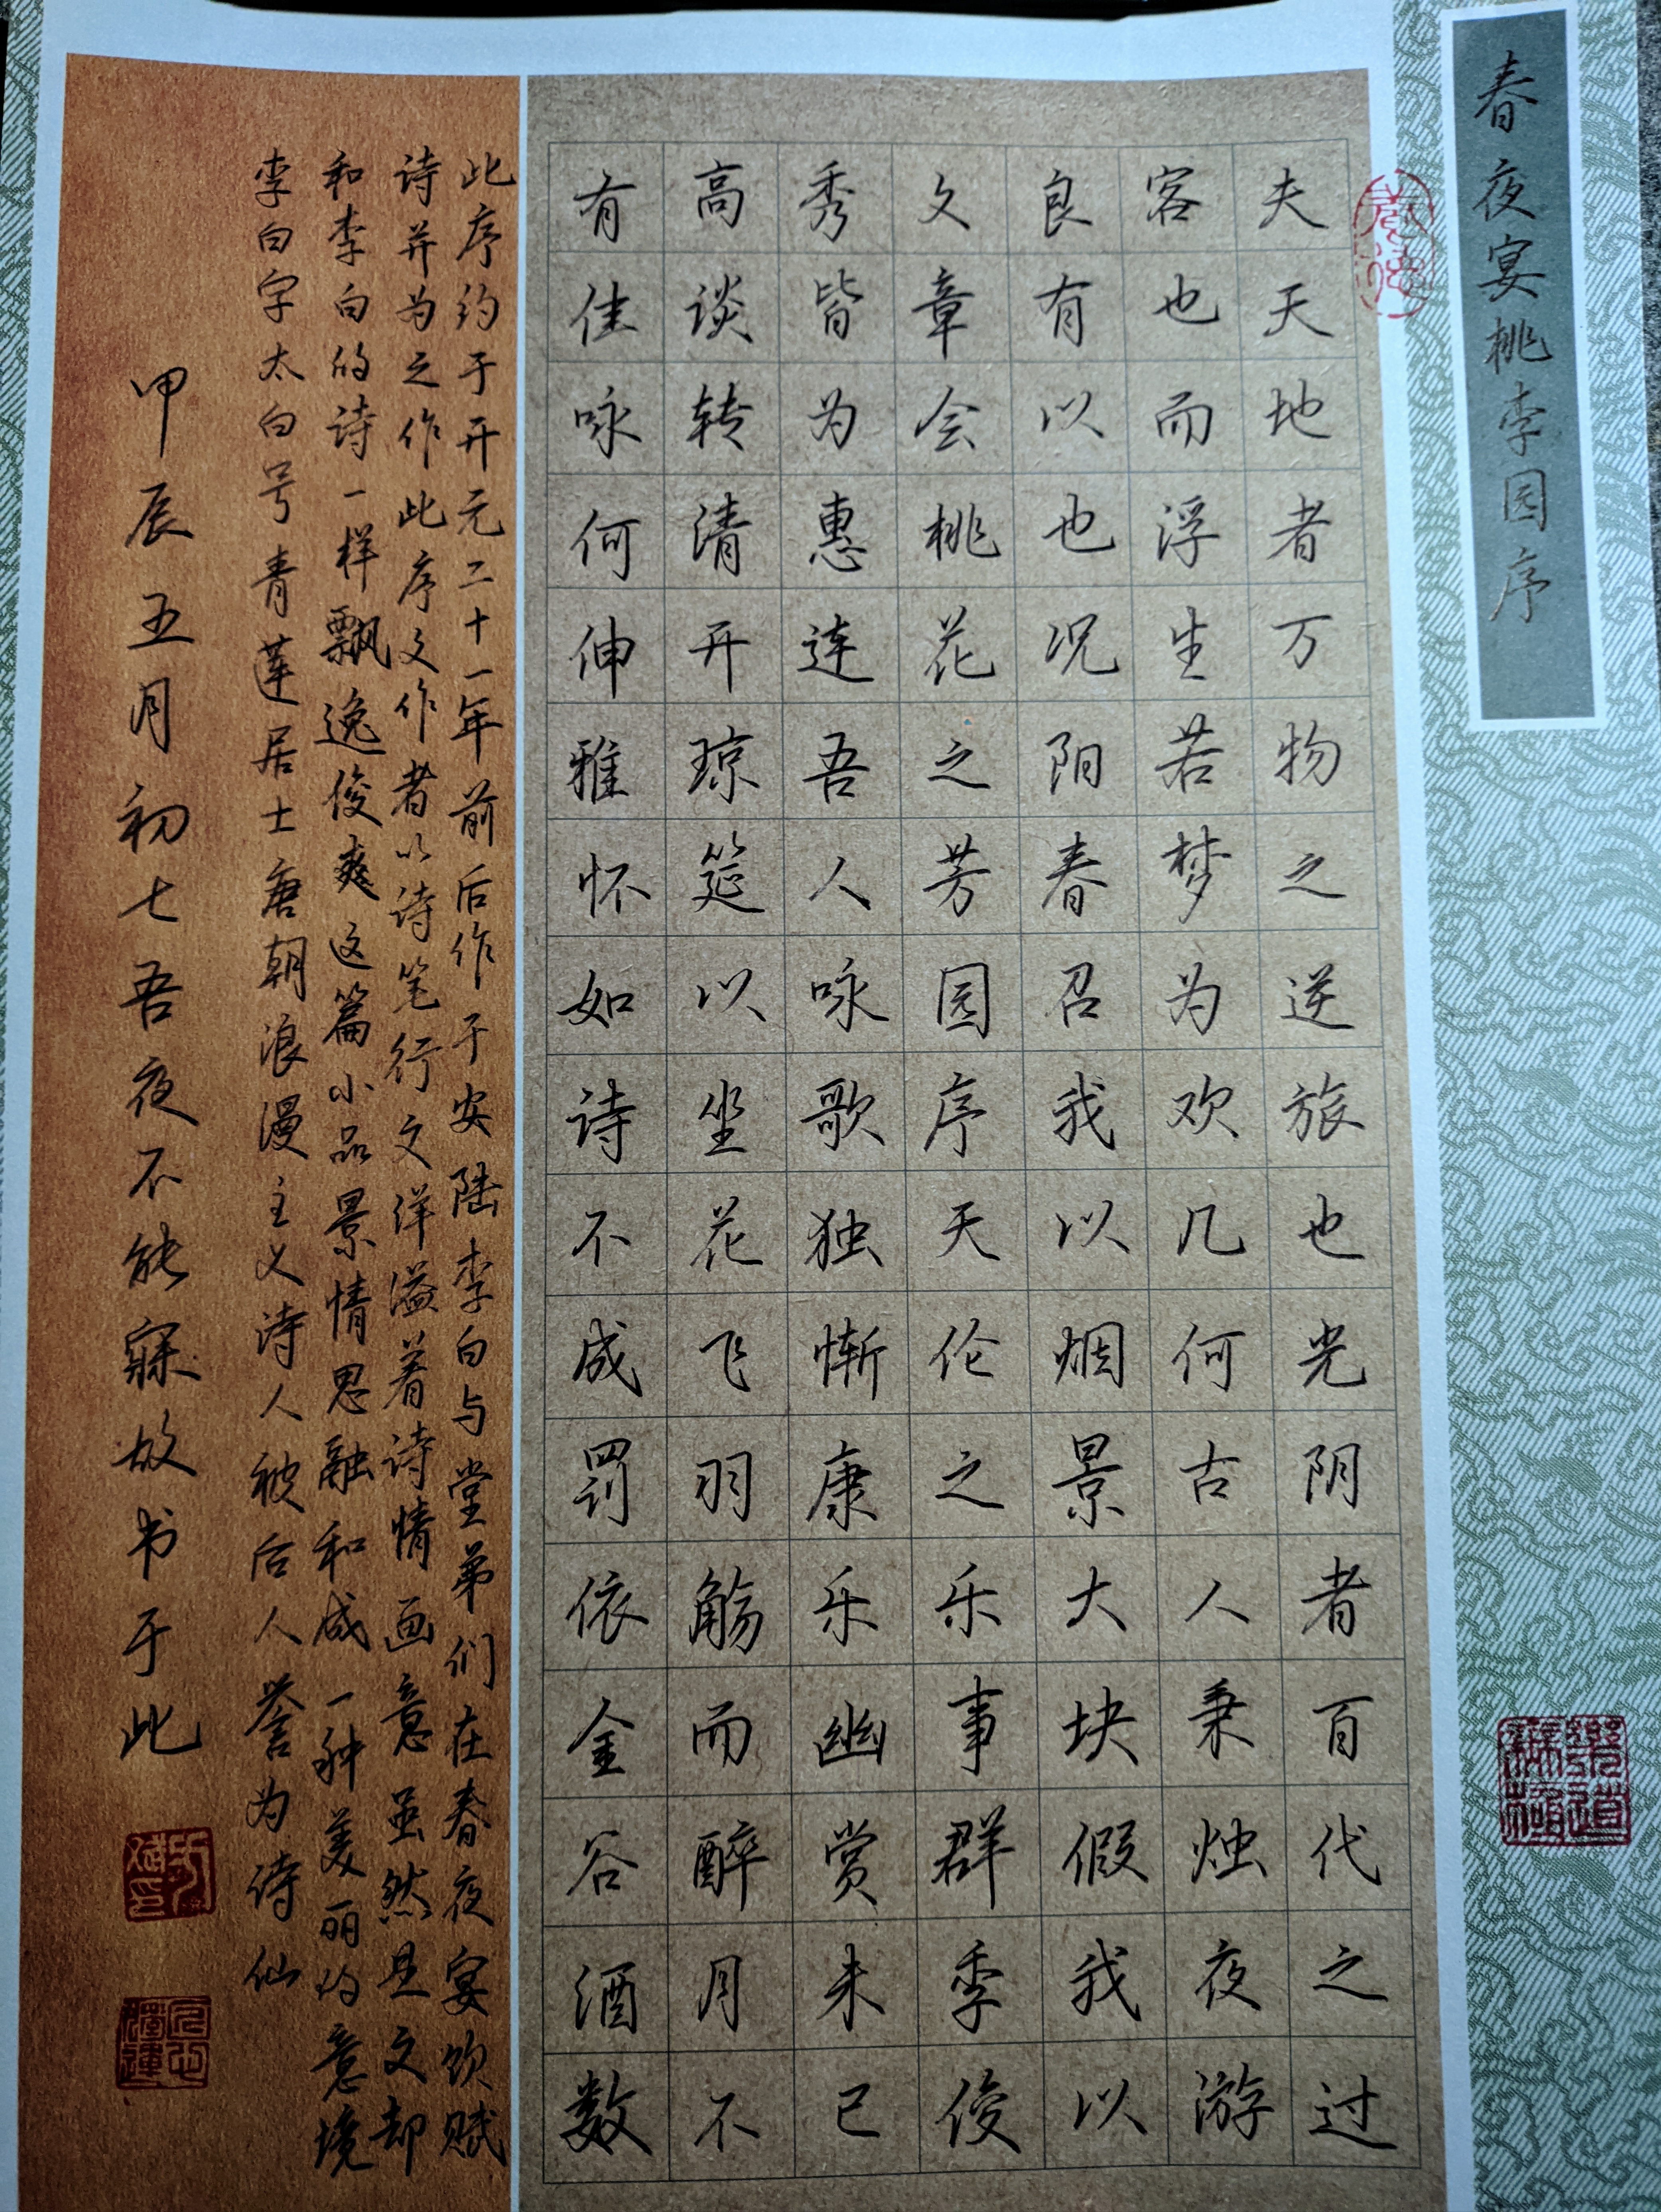 春夜宴桃李园序
夫天地者万物之逆旅也光阴者百代之过
客也而浮生若梦为欢几何古人秉烛夜游
良有以也况阳春召我以烟景大块假我以
文章会桃花之芳园序天伦之乐事群季俊
秀皆为惠连吾人咏歌独惭康乐幽赏未已
高谈转清开琼筵以坐花飞羽觞而醉月不
有佳咏何伸雅怀如诗不成罚依金谷酒数
此序约于开元二十一年前后作于安陆李白与堂弟们在春夜宴饮赋
诗并为之作此序文作者以诗笔行文洋溢着诗情画意虽然是文却
和李白的诗一样飘逸俊爽这篇小品景情思融和成一种美丽的意境
李白字太白号青莲居士唐朝浪漫主义诗人被后人誉为诗仙
甲辰五月初七吾夜不能寐故书于此
樂道無極